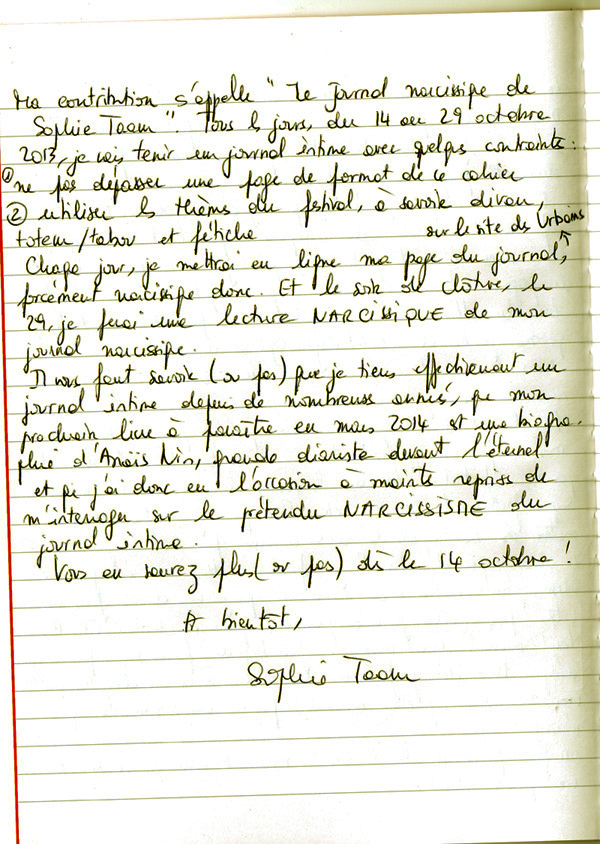 Ma contribution s'appelle "Le Journal narcissique de
Sophie Taam". Tous les jours, du 14 au 29 octobre
2013, je vais tenir un journal intime avec quelques contraintes :
① ne pas dépasser une page de format de ce cahier
② utiliser les thèmes du festival, à savoir divan,
totem/tabou et fétiche
sur le site des Urbains
Chaque jour, je mettrai en ligne ma page du journal,
forcément narcissique donc. Et le soir de clôture, le
29, je ferai une lecture NARCISSIQUE de mon
journal narcissique.
Il vous faut savoir (ou pas) que je tiens effectivement un
journal intime depuis de nombreuses années, que mon
prochain livre à paraître en mars 2014 est une biogra-
phie d'Anaïs Nin, grande diariste devant l'éternel
et que j'ai donc eu l'occasion à mainte reprises de
m'interroger sur le prétendu NARCISSISME du
journal intime.
Vous en saurez plus (ou pas) dès le 14 octobre !
A bientôt,
Sophie Taam